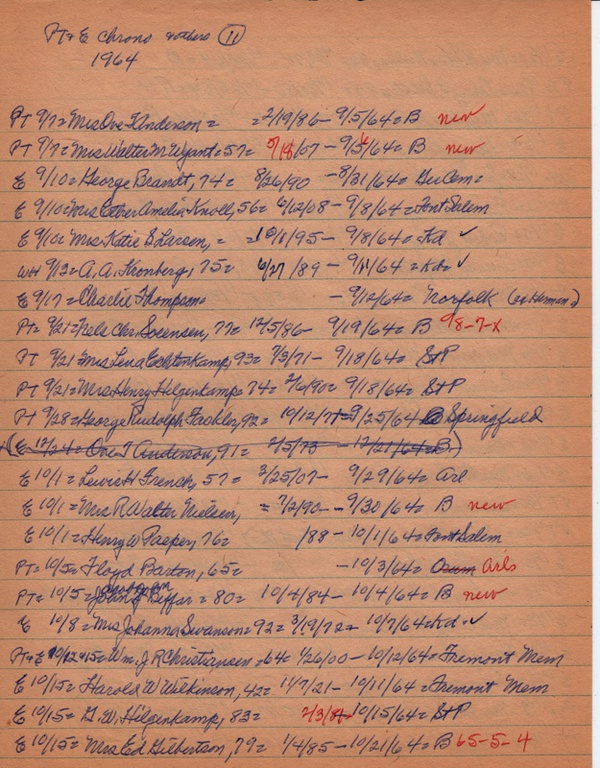 Pt & E Chrono others (11)
1964
PT 9/7= Mrs Ove T Anderson = = 2/19/86 - 9/5/64= B new
PT 9/7= Mrs Walter M Wyant = 57= 5/18/07 - 9/5/64= B new
E 9/10= George Brandt, 74= 8/26/90 - 8/31/64= Ger Cem=
E 9/10= Mrs Esther Amelia Knoll, 56= 6/12/08 - 9/8/64= Font Salem
E 9/10= Mrs Katie S Larsen, = =10/1/95 - 9/8/64= Kd ✓
WH 9/13= A. A. Kronberg, 75= 6/27/89 - 9/11/64 = Kd= ✓
E 9/17= Charlie Thompson= - 9/12/64= Norfolk (ex Herman)
PT= 9/21= Nels Chr. Sorensen, 77= 12/5/86 - 9/19/64= B 98-7-x
PT 9/21= Mrs Lena Echtenkamp, 93= 7/3/71 - 9/18/64= St P
PT 9/21= Mrs Henry Hilgenkamp= 74= 2/6/90= 9/18/64= St P
PT 9/28= George Rudolph Fashler, 92= 10/12/71= 9/25/64 Springfield
(E 12/24= Ove T Anderson, 91= 2/5/73 - 12/21/64= B.)
E 10/1= Lewis H French, 57= 3/25/07- 9/29/64= Arl
E 10/1= Mrs R Walter Nielsen, = 7/2/90 - 9/30/64= B new
E 10/1= Henry W Paeper, 76= /88 - 10/1/64= Font Salem
PT= 10/5= Floyd Barton, 65= - 10/3/64= Oxum Arls
PT= 10/5= Beffar = 80= 10/4/84 - 10/4/64= B new
E 10/8= Mrs Johanna Swanson= 92= 3/19/72= 10/7/64= Kd ✓
Pt & E 10/12 & 15= Wm. J R Christiansen =64= 1/26/00 - 10/12/64= Fremont Mem
E 10/15= Harold W Wilkinson, 42= 11/7/21 - 10/11/64= Fremont Mem
E 10/15= G. W. Hilgenkamp, 83= 2/3/81= 10/15/64= St P
E 10/15= Mrs Ed Gilbertson, 79= 1/4/85 - 10/21/64= B 65-5-4